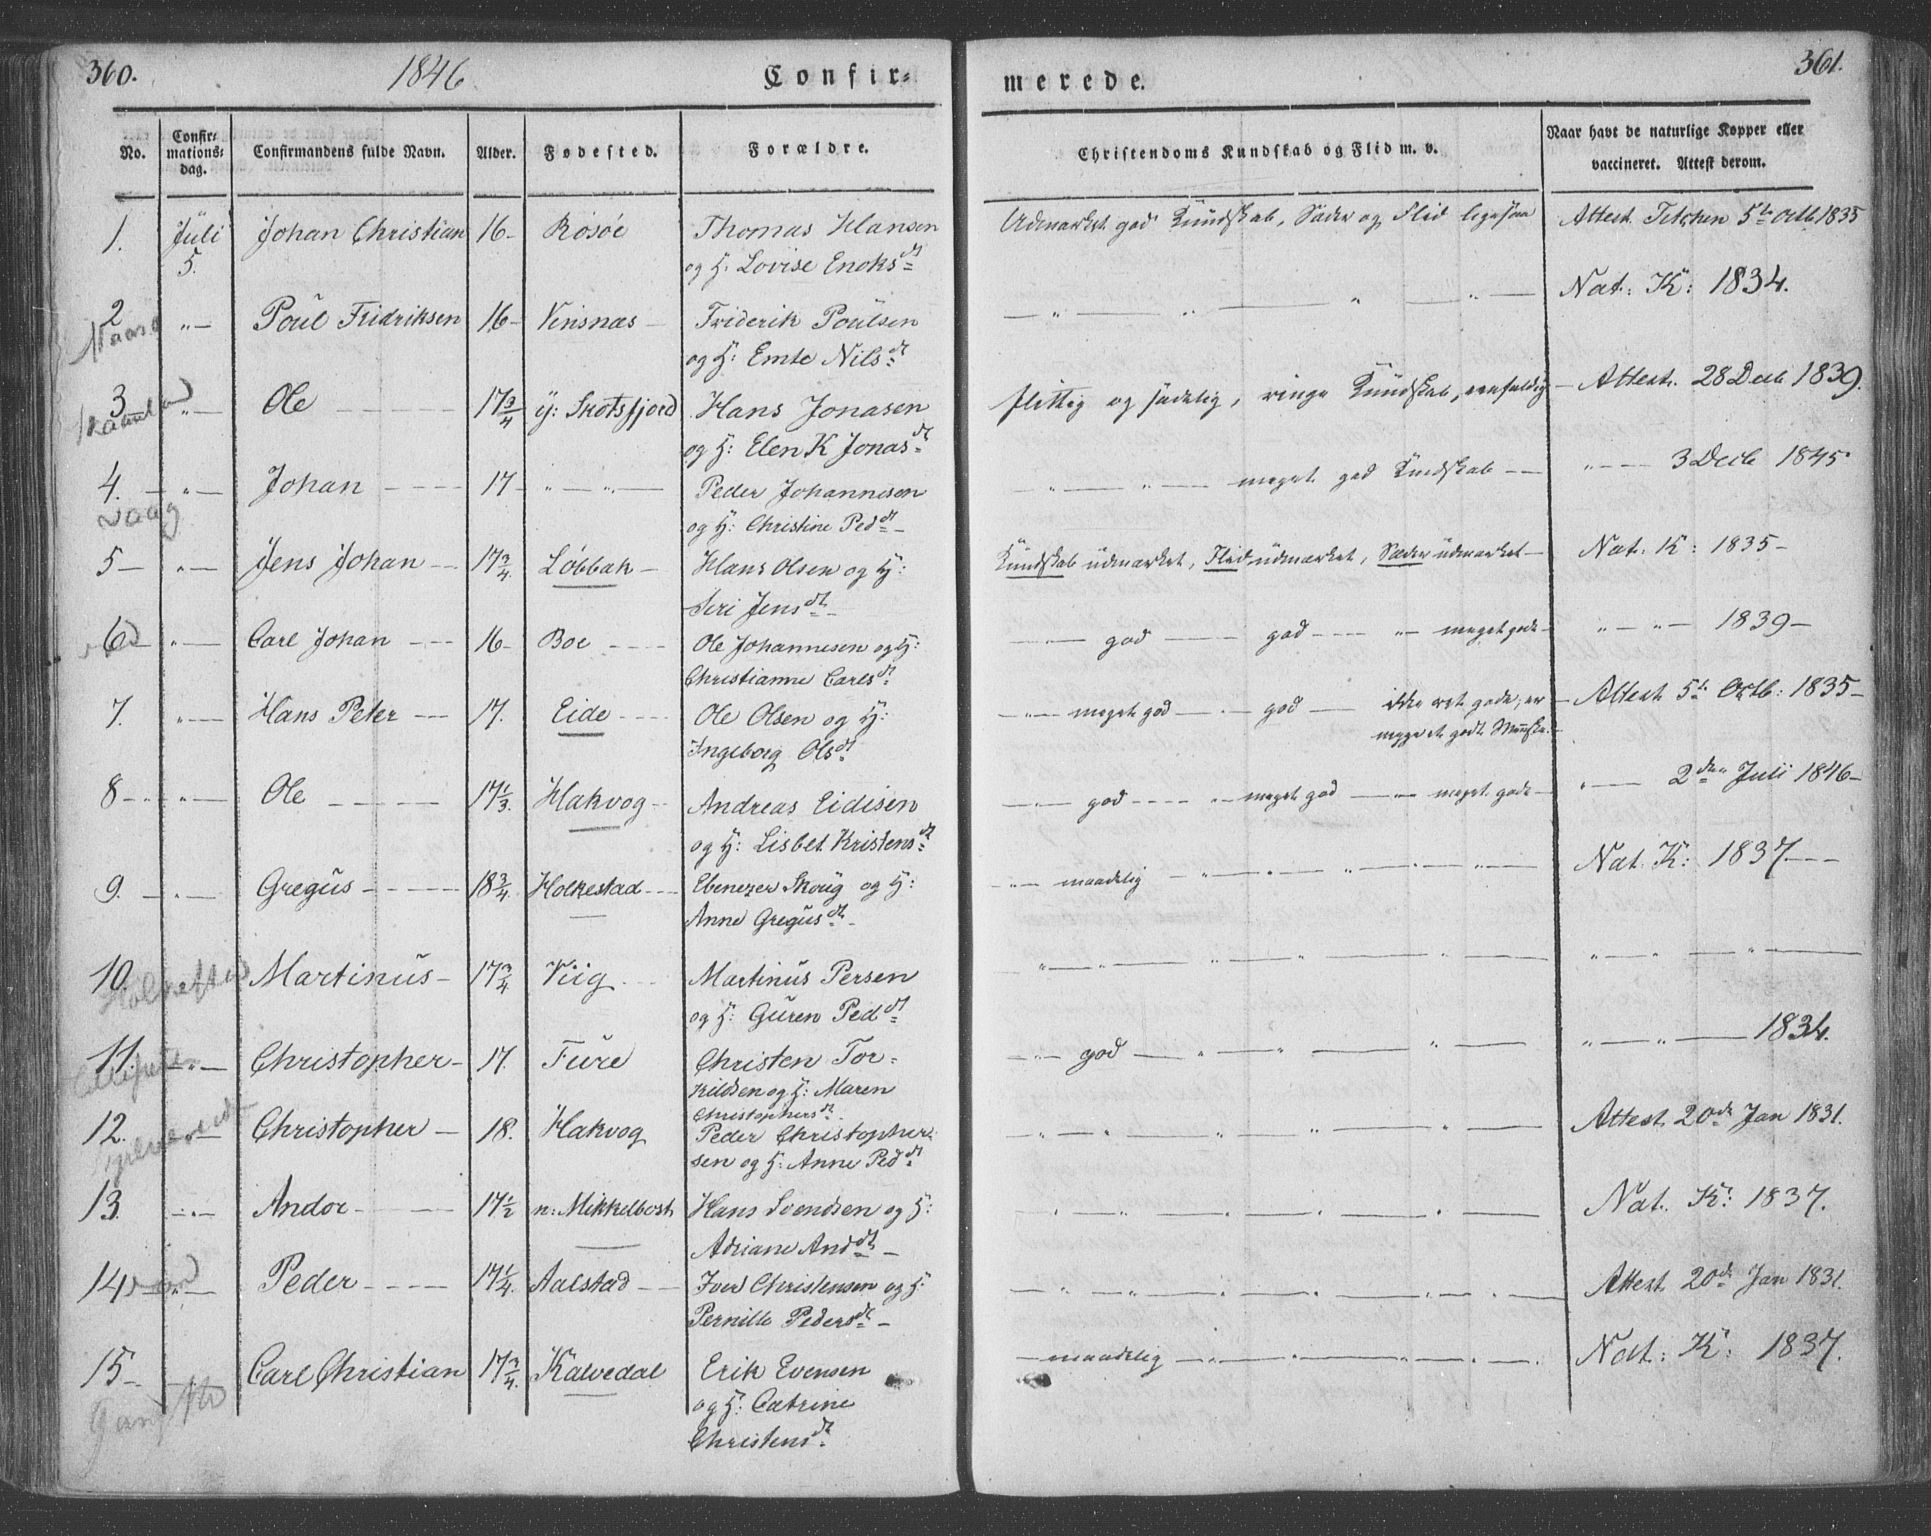 360. 1846 Confir=
merede. 361.
No. Confir=mations=dag. Confirmandens fulde Navn. Alder. Fødested. Forældre. Christendoms Kundskab og Flid m. v. Naar havt de naturlige Kopper eller vaccineret. Attest derom.
1. Juli 5. Johan Christian 16 - Rosøe Thomas Hansen Udmærket god Kundskab, Sæder og Flid ligesaa Attest 5te Octb. 1835
og H: Lovise Enoksdt
2 " — Poul Fridriksen 16 - Vinsnæs - Friderik Poulsen — " — " — " — " — Nat: K: 1834.
og H: Emte Nilsdt
3 " — Ole — 17 3/4 y: Skotsfjord Hans Jonasen flittig og sædelig, ringe Kundskab, eenfoldig - Attest. 28 Decb 1839.
og H: Elen K Jonasdt
4. — " — Johan - - - 17 - " — " — Peder Johannesen — " — " — meget god Kundskab - - " - - — 3 Decb 1845
Vaag
og H: Christine Peddt -
5 — " — Jens Johan - - 17 3/4. Løbbak - Hans Olsen og H: Kundskab udmærket, Flid udmærket, Sæder udmærket - Nat: K: 1835 -
Seri Jensdt -
6 " — Carl Johan - - - 16 - Boe - - - Ole Johannesen og H: — " — god — god - - - " — meget gode - " — " — 1839 -
Christianne Carlsdt
7. " — Hans Peter - - 17. Eide - - - Ole Olsen og H: — " — meget god — " — god — ikke ret gode, er Attest 5te Octb: 1835 -
Ingeborg Olsdt
8 - - " — Ole - - - - 17 1/3. Hakvog - - Andreas Eidisen — " — god - - - " — meget god — " — meget gode - " — 2den Juli 1846 -
og H: Lisbet Kristensdt
9. — " — Gregus - - - - 18 3/4. Holkestad - - Ebenezer Skoug og H: — " — maadelig - " — " — " — " — Nat. K: 1837. - - -
Anne Gregusdt -
10. Martinus - 17 3/4 Viig - - Martinus Persen " — " — " — " — " — " — " — " — " —
og H: Guren Peddt
11. " — Christopher - 17. Fure Christen Tor= — " — god — " — " — " — " — " — " — 1834.
kildsen og H: Maren
Christophersdt
12. — Christopher - 18. Hakvog Peder Christopher= — " — " — " — " — " — " — Attest. 20de Jan 1831.
sen og H: Anne Peddt
13. - " - Andor - - - 17 1/2 n: Mikkelbost Hans Svendsen og H: " — " — " — " — " — Nat. K: 1837.
Adriane Anddt -
14 " — Peder - - - - 17 1/4. Aalstad - - Iver Christensen og H. " — " — " — " — " — Attest 20de Jan 1831.
Pernille Pedersdt -
15 - — Carl Christian 17 3/4. Kalvedal Erik Evensen — maadelig — " — " — " — " — Nat: K: 1837.
og H: Catrine
Christensdt